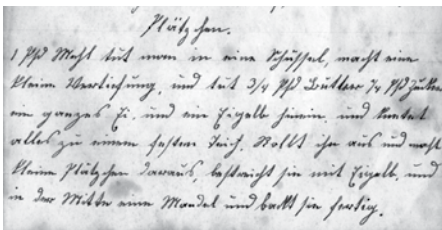 Plätzchen.
1 Pfd Mehl tut man in eine Schüssel, macht eine
kleine Vertiefung, und tut 3/4 Pfd Butter 1/4 Pfd Zucker
ein ganzes Ei, und ein Eigelb hinein, und knetet
alles zu einem festen Teig. Rollt ihn aus und macht
kleine Plätzchen daraus, bestreicht sie mit Eigelb, und
in der Mitte eine Mandel und backt sie fertig.